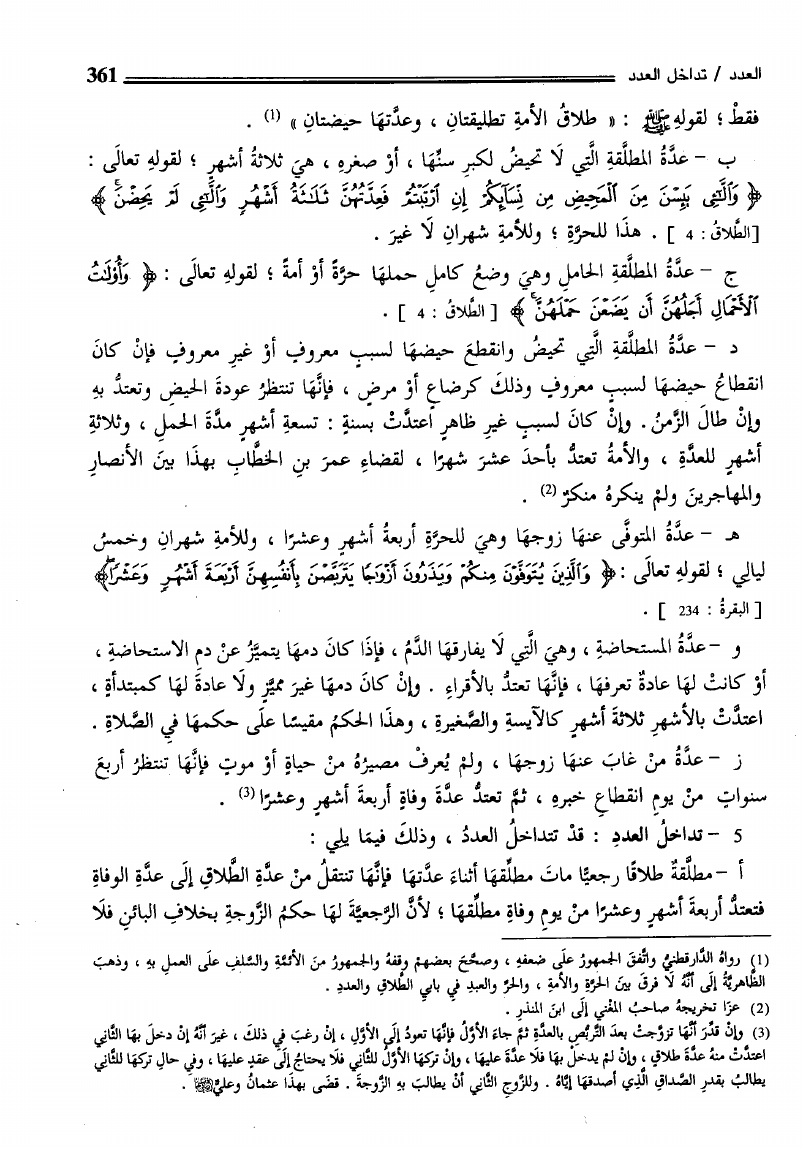 العدد / تداخل العدد 361
فقطْ ؛ لقولهِ ﷺ : « طلاقُ الأمةِ تطليقتانِ ، وعدَّتهَا حيضتانِ » (1) .
ب – عدَّةُ المطلَّقةِ الَّتِي لَا تحيضُ لكبرِ سنِّهَا ، أوْ صغرهِ ، هيَ ثلاثةُ أشهرٍ ؛ لقولهِ تعالَى :
﴿ وَٱلَّٰٓـِٔى يَئِسْنَ مِنَ ٱلْمَحِيضِ مِن نِّسَآئِكُمْ إِنِ ٱرْتَبْتُمْ فَعِدَّتُهُنَّ ثَلَٰثَةُ أَشْهُرٍ وَٱلَّٰٓـِٔى لَمْ يَحِضْنَ ﴾
[الطَّلاقُ : 4 ] . هذَا للحرَّةِ ؛ وللأمةِ شهرانِ لَا غيرَ .
ج – عدَّةُ المطلَّقةِ الحاملِ وهيَ وضعُ كاملِ حملهَا حرَّةً أوْ أمةً ؛ لقولهِ تعالَى : ﴿ وَأُو۟لَٰتُ
ٱلْأَحْمَالِ أَجَلُهُنَّ أَن يَضَعْنَ حَمْلَهُنَّ ﴾ [ الطَّلاقُ : 4 ] .
د – عدَّةُ المطلَّقةِ الَّتِي تحيضُ وانقطعَ حيضهَا لسببٍ معروفٍ أوْ غيرِ معروفٍ فإنْ كانَ
انقطاعُ حيضهَا لسببٍ معروفٍ وذلكَ كرضاعٍ أوْ مرضٍ ، فإنَّهَا تنتظرُ عودةَ الحيضِ وتعتدُّ بهِ
وإنْ طالَ الزَّمنُ. وإنْ كانَ لسببٍ غيرِ ظاهرٍ اعتدَّتْ بسنةٍ : تسعةِ أشهرٍ مدَّةَ الحملِ ، وثلاثةِ
أشهرٍ للعدَّةِ ، والأمةُ تعتدُّ بأحدَ عشرَ شهرًا ، لقضاءِ عمرَ بنِ الخطَّابِ بهذَا بينَ الأنصارِ
والمهاجرينَ ولمْ ينكرهُ منكرٌ (2) .
هـ – عدَّةُ المتوفَّى عنهَا زوجهَا وهيَ للحرَّةِ أربعةُ أشهرٍ وعشرًا ، وللأمةِ شهرانِ وخمسُ
ليالِي ؛ لقولهِ تعالَى : ﴿ وَٱلَّذِينَ يُتَوَفَّوْنَ مِنكُمْ وَيَذَرُونَ أَزْوَٰجًا يَتَرَبَّصْنَ بِأَنفُسِهِنَّ أَرْبَعَةَ أَشْهُرٍ وَعَشْرًا ﴾
[ البقرةُ : 234 ] .
و – عدَّةُ المستحاضةِ ، وهيَ الَّتِي لَا يفارقهَا الدَّمُ ، فإذَا كانَ دمهَا يتميَّزُ عنْ دمِ الاستحاضةِ ،
أوْ كانتْ لهَا عادةٌ تعرفهَا ، فإنَّهَا تعتدُّ بالأقراءِ . وإنْ كانَ دمهَا غيرَ مميَّزٍ ولَا عادةَ لهَا كمبتدأةٍ ،
اعتدَّتْ بالأشهرِ ثلاثةَ أشهرٍ كالآيسةِ والصَّغيرةِ ، وهذَا الحكمُ مقيسًا علَى حكمهَا فِي الصَّلاةِ .
ز – عدَّةُ منْ غابَ عنهَا زوجهَا ، ولمْ يُعرفْ مصيرُهُ منْ حياةٍ أوْ موتٍ فإنَّهَا تنتظرُ أربعَ
سنواتٍ منْ يومِ انقطاعِ خبرهِ ، ثمَّ تعتدُّ عدَّةَ وفاةٍ أربعةَ أشهرٍ وعشرًا (3) .
5 – تداخلُ العددِ : قدْ تتداخلُ العددُ ، وذلكَ فيمَا يلِي :
أ – مطلَّقةٌ طلاقًا رجعيًّا ماتَ مطلِّقهَا أثناءَ عدَّتهَا فإنَّهَا تنتقلُ منْ عدَّةِ الطَّلاقِ إلَى عدَّةِ الوفاةِ
فتعتدُّ أربعةَ أشهرٍ وعشرًا منْ يومِ وفاةِ مطلِّقهَا ؛ لأنَّ الرَّجعيَّةَ لهَا حكمُ الزَّوجةِ بخلافِ البائنِ فلَا
(1) رواهُ الدَّارقطنيُّ واتَّفقَ الجمهورُ علَى ضعفهِ ، وصحَّحَ بعضهمْ وقفهُ والجمهورُ منَ الأئمَّةِ والسَّلفِ علَى العملِ بهِ ، وذهبَ
الظَّاهريَّةُ إلَى أنَّهُ لَا فرقَ بينَ الحرَّةِ والأمةِ ، والحرِّ والعبدِ فِي بابَيِ الطَّلاقِ والعددِ .
(2) عزَا تخريجهُ صاحبُ المغنِي إلَى ابنِ المنذرِ .
(3) وإنْ قدِّرَ أنَّهَا تزوَّجتْ بعدَ التَّربُّصِ بالعدَّةِ ثمَّ جاءَ الأوَّلُ فإنَّهَا تعودُ إلَى الأوَّلِ ، إنْ رغبَ فِي ذلكَ ، غيرَ أنَّهُ إنْ دخلَ بهَا الثَّانِي
اعتدَّتْ منهُ عدَّةَ طلاقٍ ، وإنْ لمْ يدخلْ بهَا فلَا عدَّةَ عليهَا ، وإنْ تركهَا الأوَّلُ للثَّانِي فلَا يحتاجُ إلَى عقدٍ عليهَا ، وفِي حالِ تركهَا للثَّانِي
يطالبُ بقدرِ الصَّداقِ الَّذِي أصدقهَا إيَّاهُ . وللزَّوجِ الثَّانِي أنْ يطالبَ بهِ الزَّوجةَ . قضَى بهذَا عثمانُ وعليٌّ .